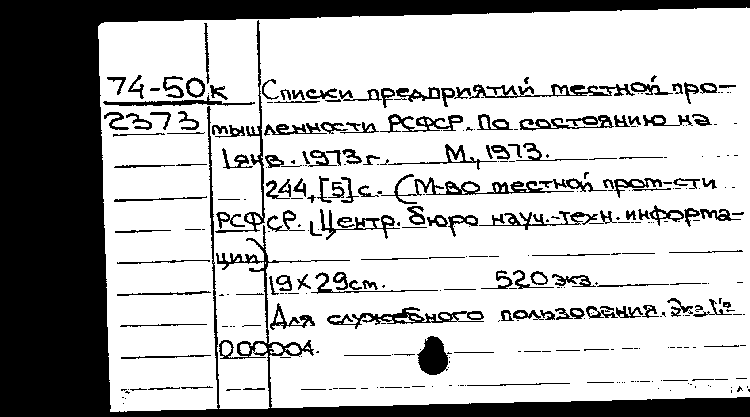 74-50к Списки предприятий местной про-
2373 мышленности РСФСР. По состоянию на
1 янв. 1973 г. М., 1973.
244, [5] с. (М-во местной пром-сти
РСФСР. Центр. бюро науч.-техн. информа-
ции)
19×29 см. 520 экз.
Для служебного пользования. Экз. №
000004.